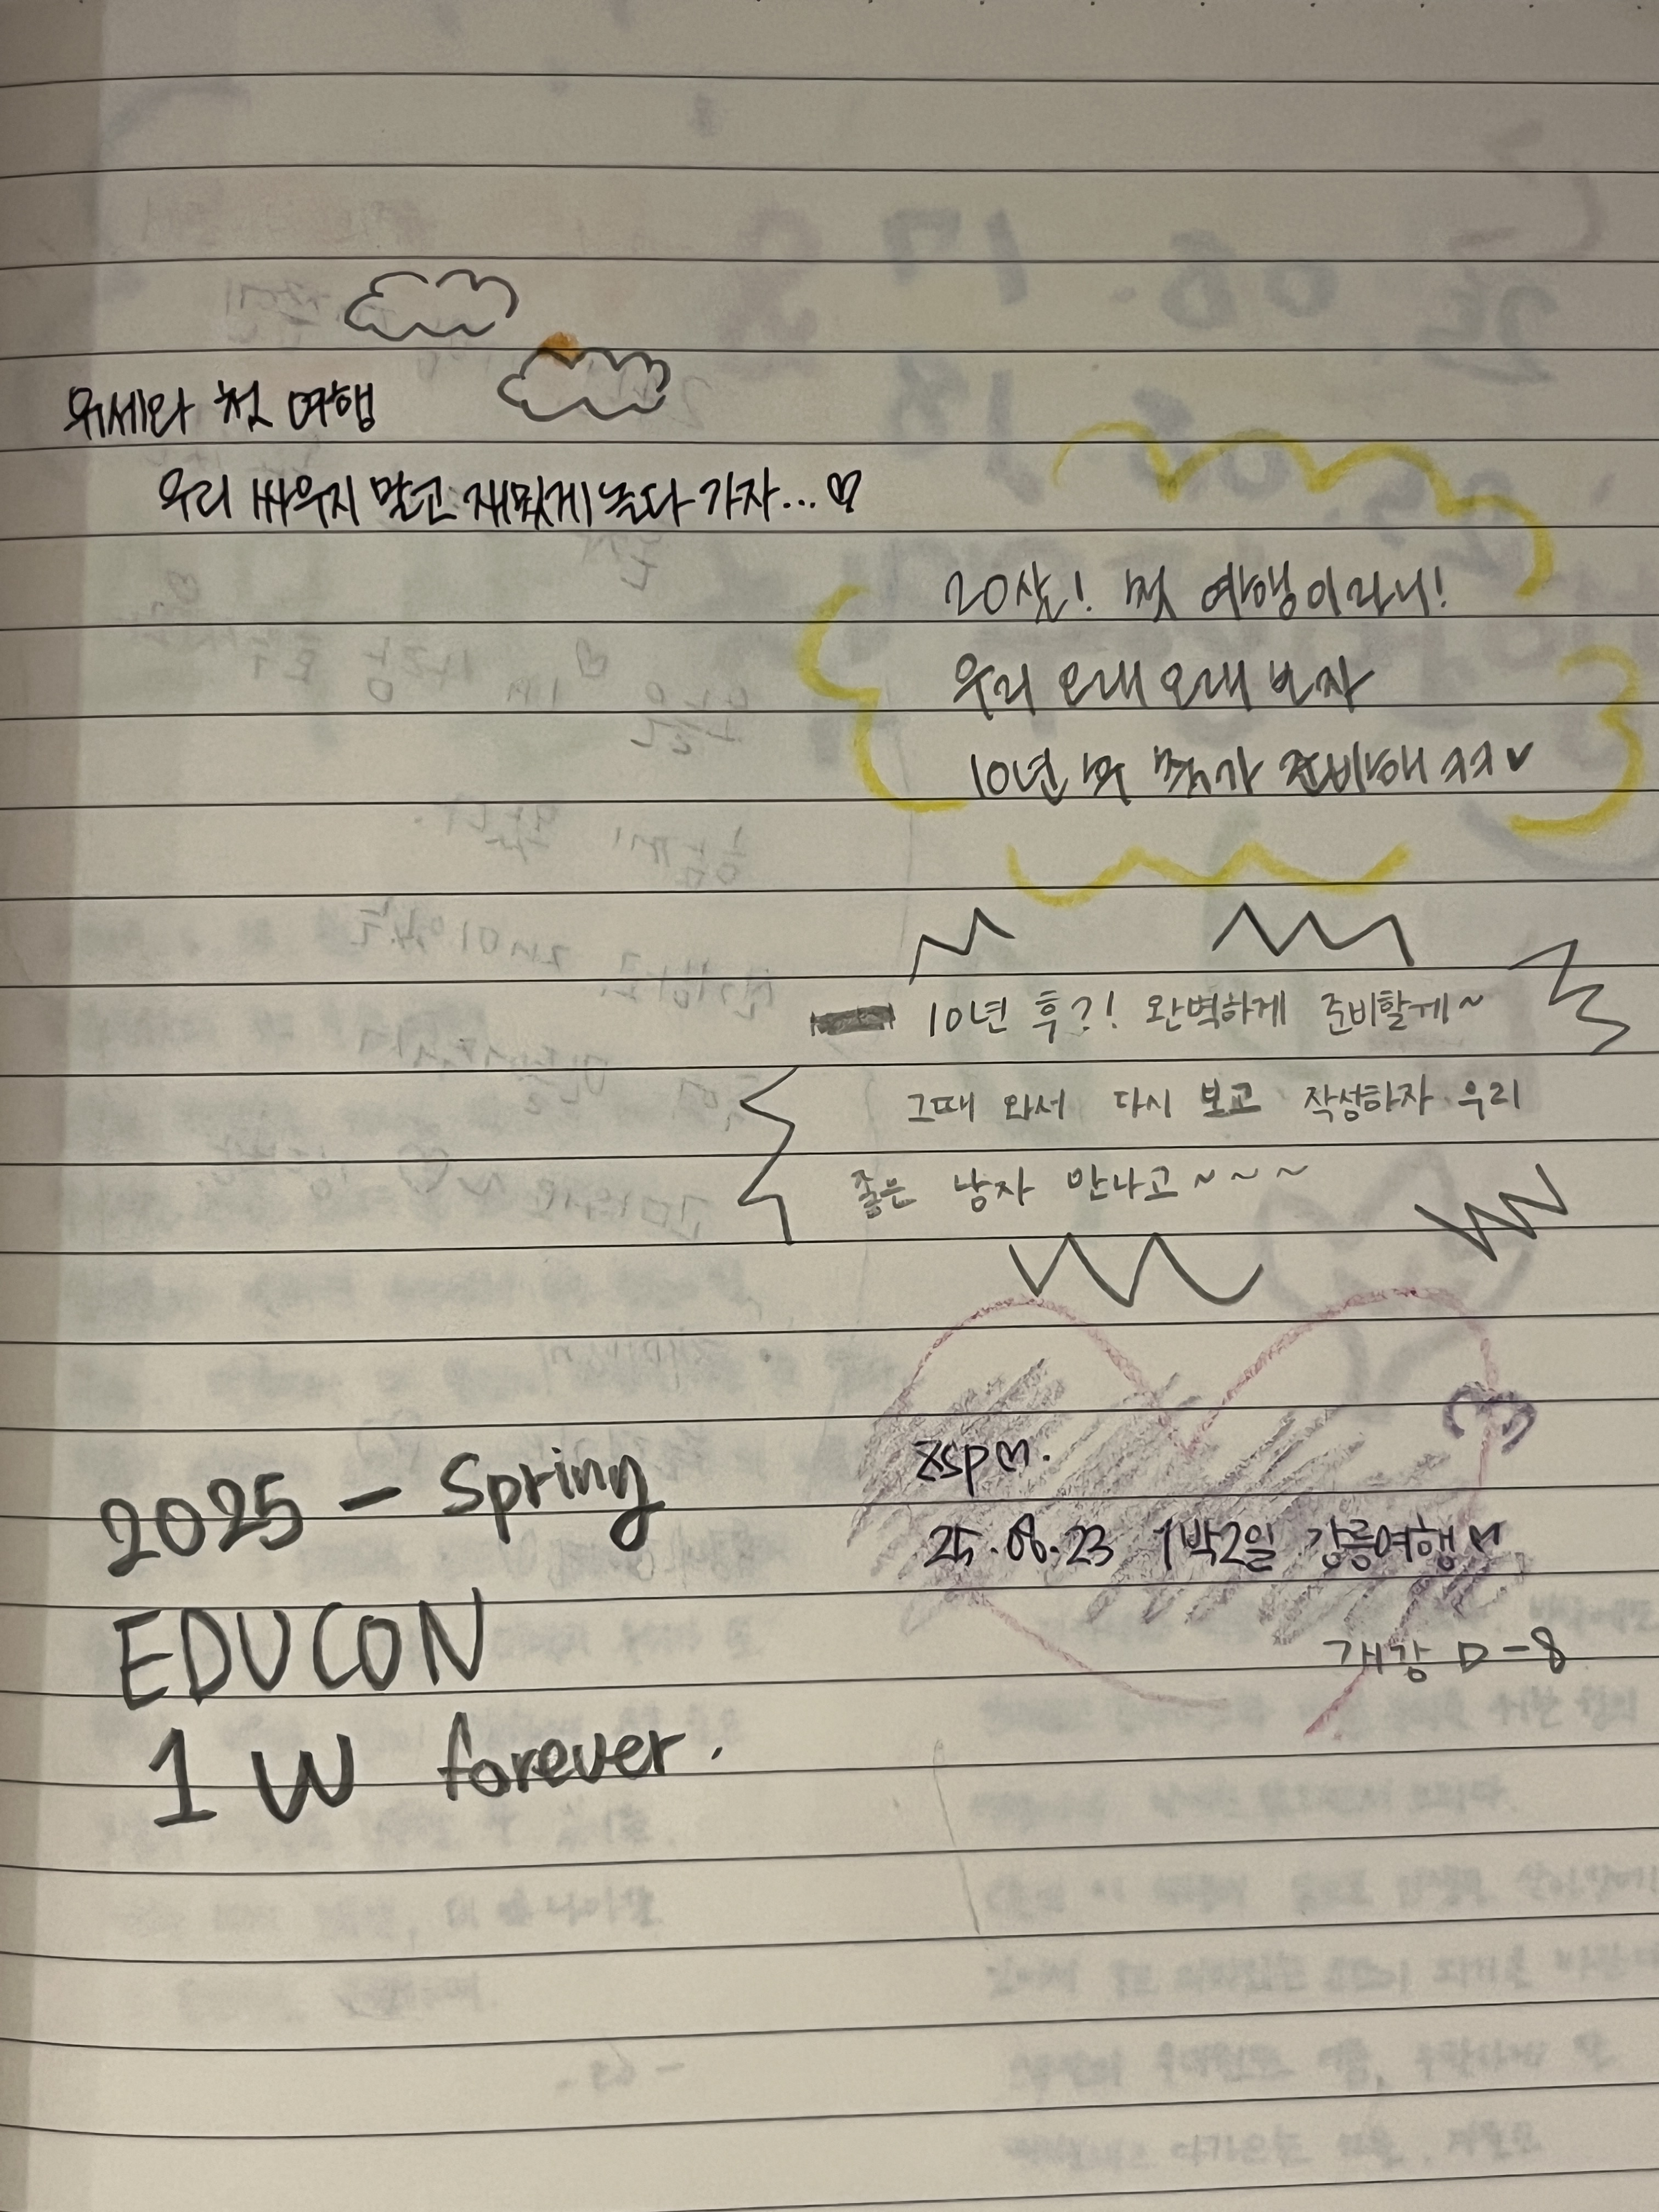 위세와 첫 여행
우리 싸우지 말고 재밌게 놀다 가자...♡
20살! 첫 여행이라니!
우리 오래 오래 보자
10년 뒤 축가 준비해 ㅋㅋ♥
10년 후?! 완벽하게 준비할게~
그때 와서 다시 보고 작성하자 우리
좋은 남자 만나고~~~
zsp♡.
25.08.23 1박2일 강릉여행♡
개강 D-8
2025 - Spring
EDUCON
1 W forever.